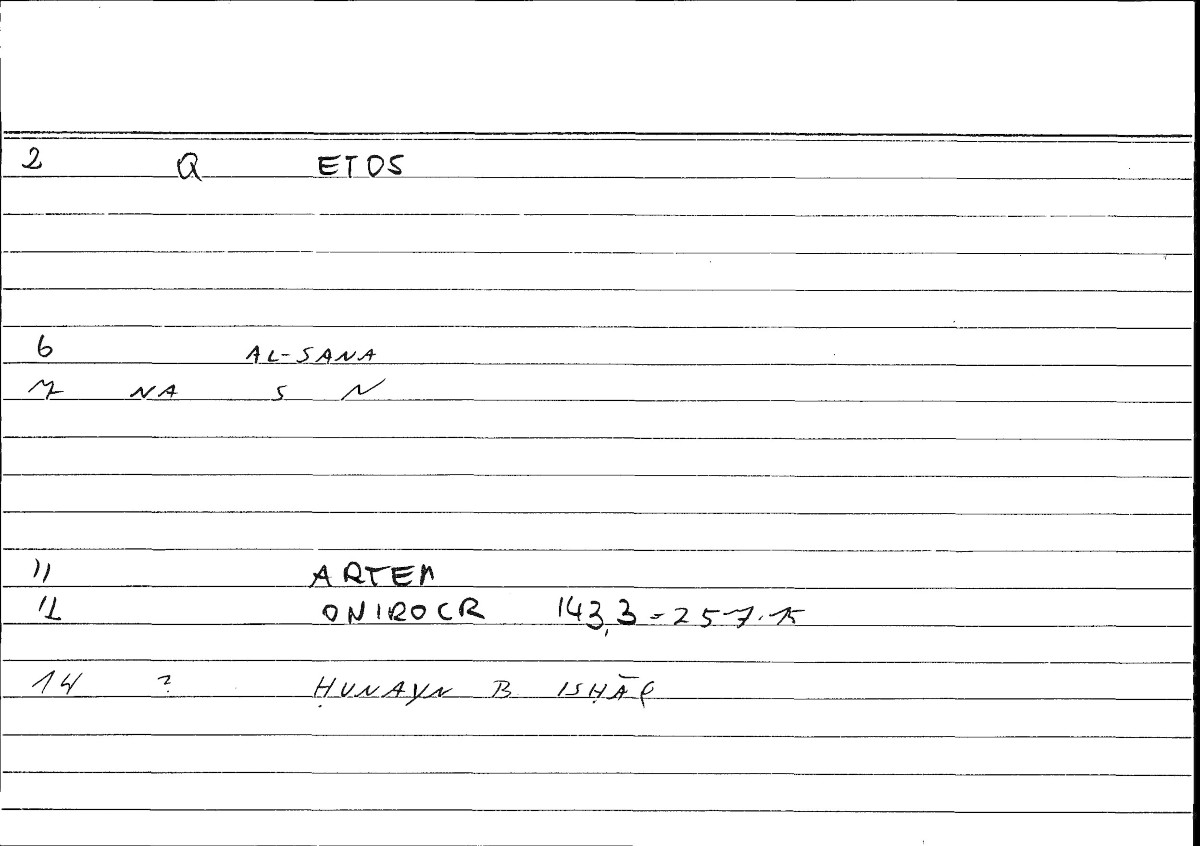 2 Q ETOS
6 AL-SANA
7 NA S N
11 ARTEM
12 ONIROCR 143,3 = 257.15
14 ? ḤUNAYN B ISḤĀQ